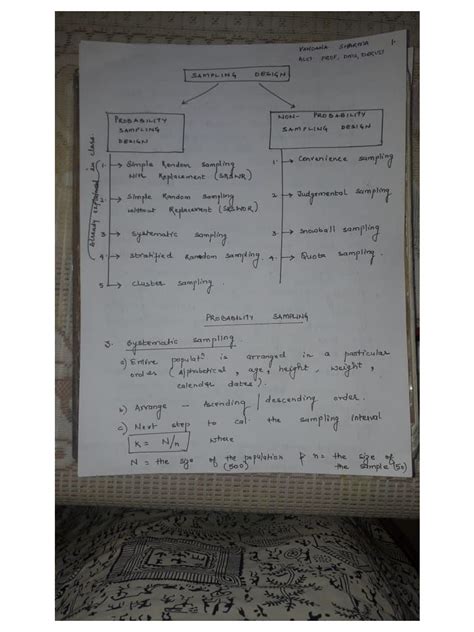 VANDANA SHARMA 1.
ASST. PROF, DAV,
SAMPLING DESIGN
PROBABILITY
SAMPLING
DESIGN
NON- PROBABILITY
SAMPLING DESIGN
Already explained in class
1. Simple Random Sampling
with Replacement (SRSWR)
2. Simple Random Sampling
without Replacement (SRSWOR)
3. Systematic Sampling
4. Stratified Random Sampling
5. Cluster Sampling.
1. Convenience Sampling
2. Judgemental Sampling
3. Snowball Sampling
4. Quota Sampling.
PROBABILITY SAMPLING
3. Systematic Sampling.
a) Entire populatn is arranged in a particular
order (alphabetical, age, height, weight,
calender dates).
b) Arrange — Ascending / descending order.
c) Next step to cal. the sampling interval
K = N/n where
N = the size of the population & n = the size of
(500) the sample (50)